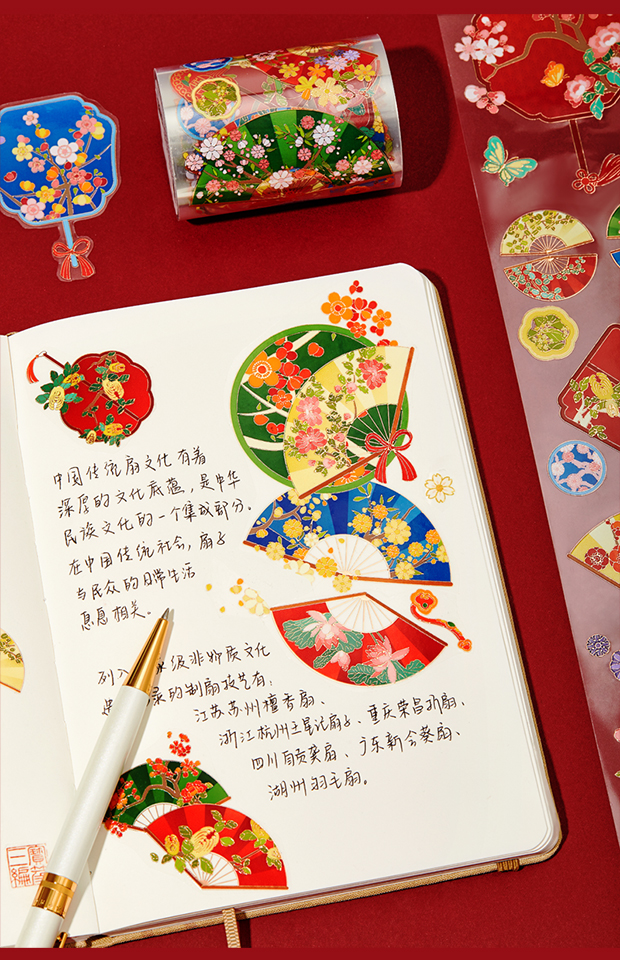 中国传统扇文化有着
深厚的文化底蕴，是中华
民族文化的一个集成部分。
在中国传统社会，扇子
与民众的日常生活
息息相关。
列入 级非物质文化
录的制扇技艺有：
江苏苏州檀香扇、
浙江杭州王星记扇子、重庆荣昌折扇、
四川自贡龚扇、广东新会葵扇、
湖州羽毛扇。